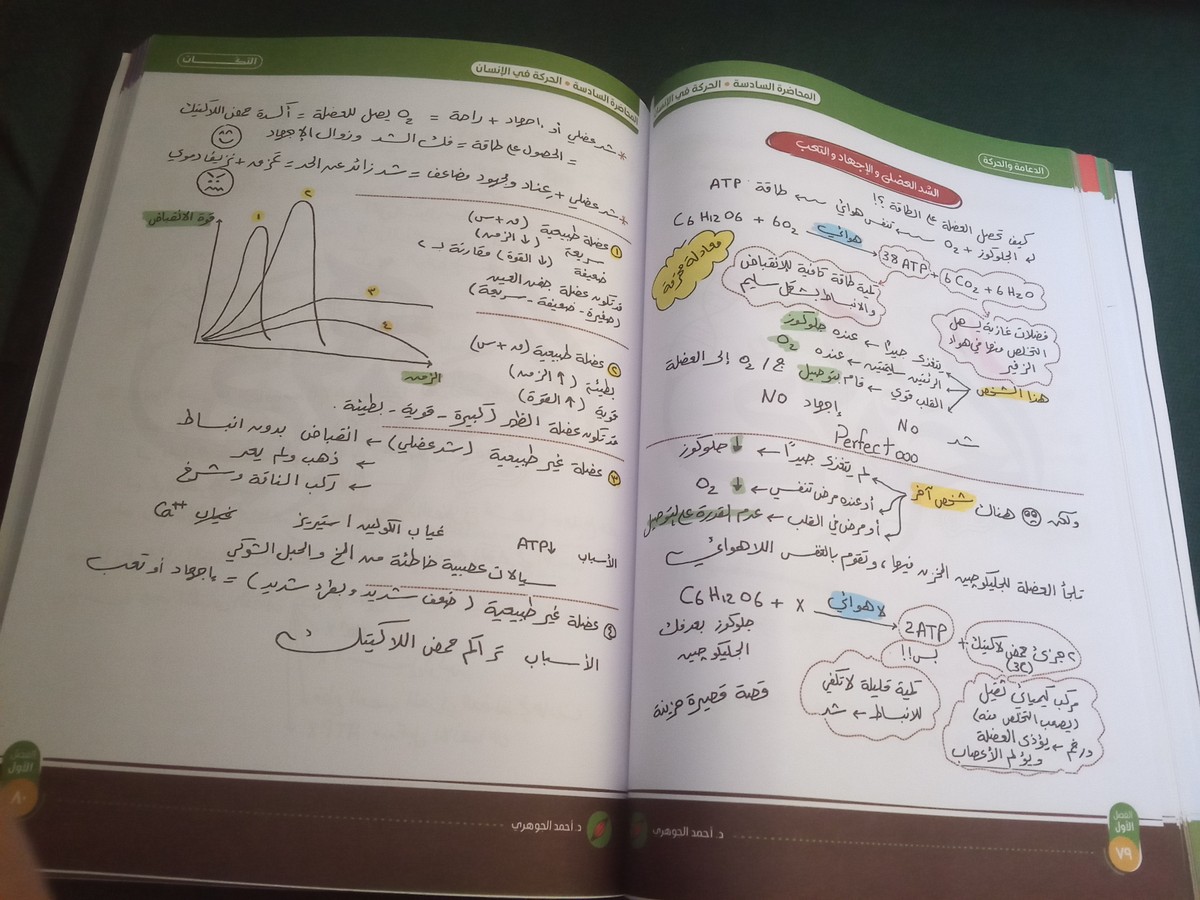 الدعامة والحركة
المحاضرة السادسة • الحركة في الإنسان
الشد العضلي والإجهاد والتعب
كيف تحصل العضلة على الطاقة ؟!
له الجلوكوز + O2 تنفس هوائي طاقة ATP
C6H12O6 + 6O2 هوائي 38 ATP + 6CO2 + 6H2O
معادلة محترقة
كمية طاقة كافية للانقباض
والانبساط بشكل سليم
فضلات غازية يسهل
التخلص منها في هواء
الزفير
هذا الشخص
يتغذى جيداً ← عنده جلوكوز
الرئتين سليمتين ← عنده O2
القلب قوي ← قام بتوصيل ج / O2 إلى العضلة
شد No إجهاد No
Perfectooo
ولكن هناك شخص آخر
لم يتغذى جيداً ← ↓ جلوكوز
أو عنده مرض تنفسي ← ↓ O2
أو مرض في القلب ← عدم القدرة على التوصيل
تلجأ العضلة للجليكوجين المخزن فيها، وتقوم بالتنفس اللاهوائي
C6H12O6 + X لا هوائي 2ATP + 2 جزئ حمض لاكتيك (3C)
جلوكوز بعرفك
الجليكوجين
بس!!
كمية قليلة لا تكفي
للانبساط ← شد
قصة قصيرة حزينة
مركب كيميائي ثقيل
(يصعب التخلص منه)
يؤذي العضلة
ويؤلم الأعصاب
د. أحمد الجوهري
الفصل
الأول
٧٩
المحاضرة السادسة • الحركة في الإنسان
* شد عضلي أو إجهاد + راحة = O2 يصل للعضلة = أكسدة حمض اللاكتيك
= الحصول على طاقة = فك الشد وزوال الإجهاد
* شد عضلي + عناد ومجهود مضاعف = شد زائد عن الحد = تمزق + نزيف دموي
قوة الانقباض
الزمن
1
2
3
4
① عضلة طبيعية (ق + س)
سريعة (↓ الزمن)
ضعيفة (↓ القوة) مقارنة بـ 2
قد تكون عضلة جفن العين
(صغيرة - ضعيفة - سريعة)
② عضلة طبيعية (ق + س)
بطيئة (↑ الزمن)
قوية (↑ القوة)
قد تكون عضلة الظهر (كبيرة - قوية - بطيئة.
③ عضلة غير طبيعية (شد عضلي) ← انقباض بدون انبساط
← ذهب ولم يعد
← ركب الناقة وشرخ
الأسباب ATP↓ غياب الكولين استيريز غياب Ca++
سيالات عصبية خاطئة من المخ والحبل الشوكي
④ عضلة غير طبيعية (ضعف شديد وبطئ شديد) = إجهاد أو تعب
الأسباب تراكم حمض اللاكتيك
د. أحمد الجوهري
الفصل
الأول
٨٠